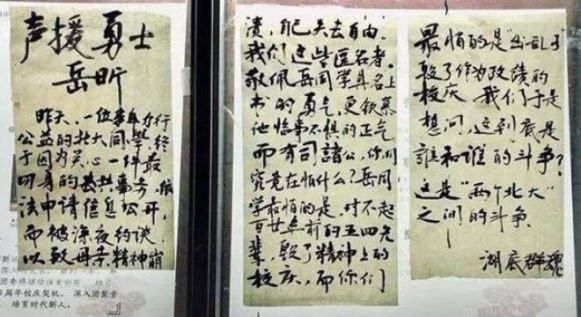 声援勇士
岳昕
昨天，一位事事力行
公益的北大同学，终
于因为关心一件最
切身的公共事务，依
法申请信息公开，
而被深夜约谈
以致母亲精神崩
溃，自己失去自由。
我们这些匿名者，
敬佩岳同学具名上
书的勇气，更钦慕
他临事不惧的正气
而有司諸公，你们
究竟在怕什么？岳同
学最怕的是，对不起
百廿年前的五四先
輩，毁了精神上的
校庆，而你们
最怕的是“出乱子”
毁了作为政绩的
校庆。我们于是
想问，这到底是
誰和谁的斗争？
这是“两个北大”
之间的斗争。
湖底群魂
周年校庆契机，深入团聚青
培育时代新人。